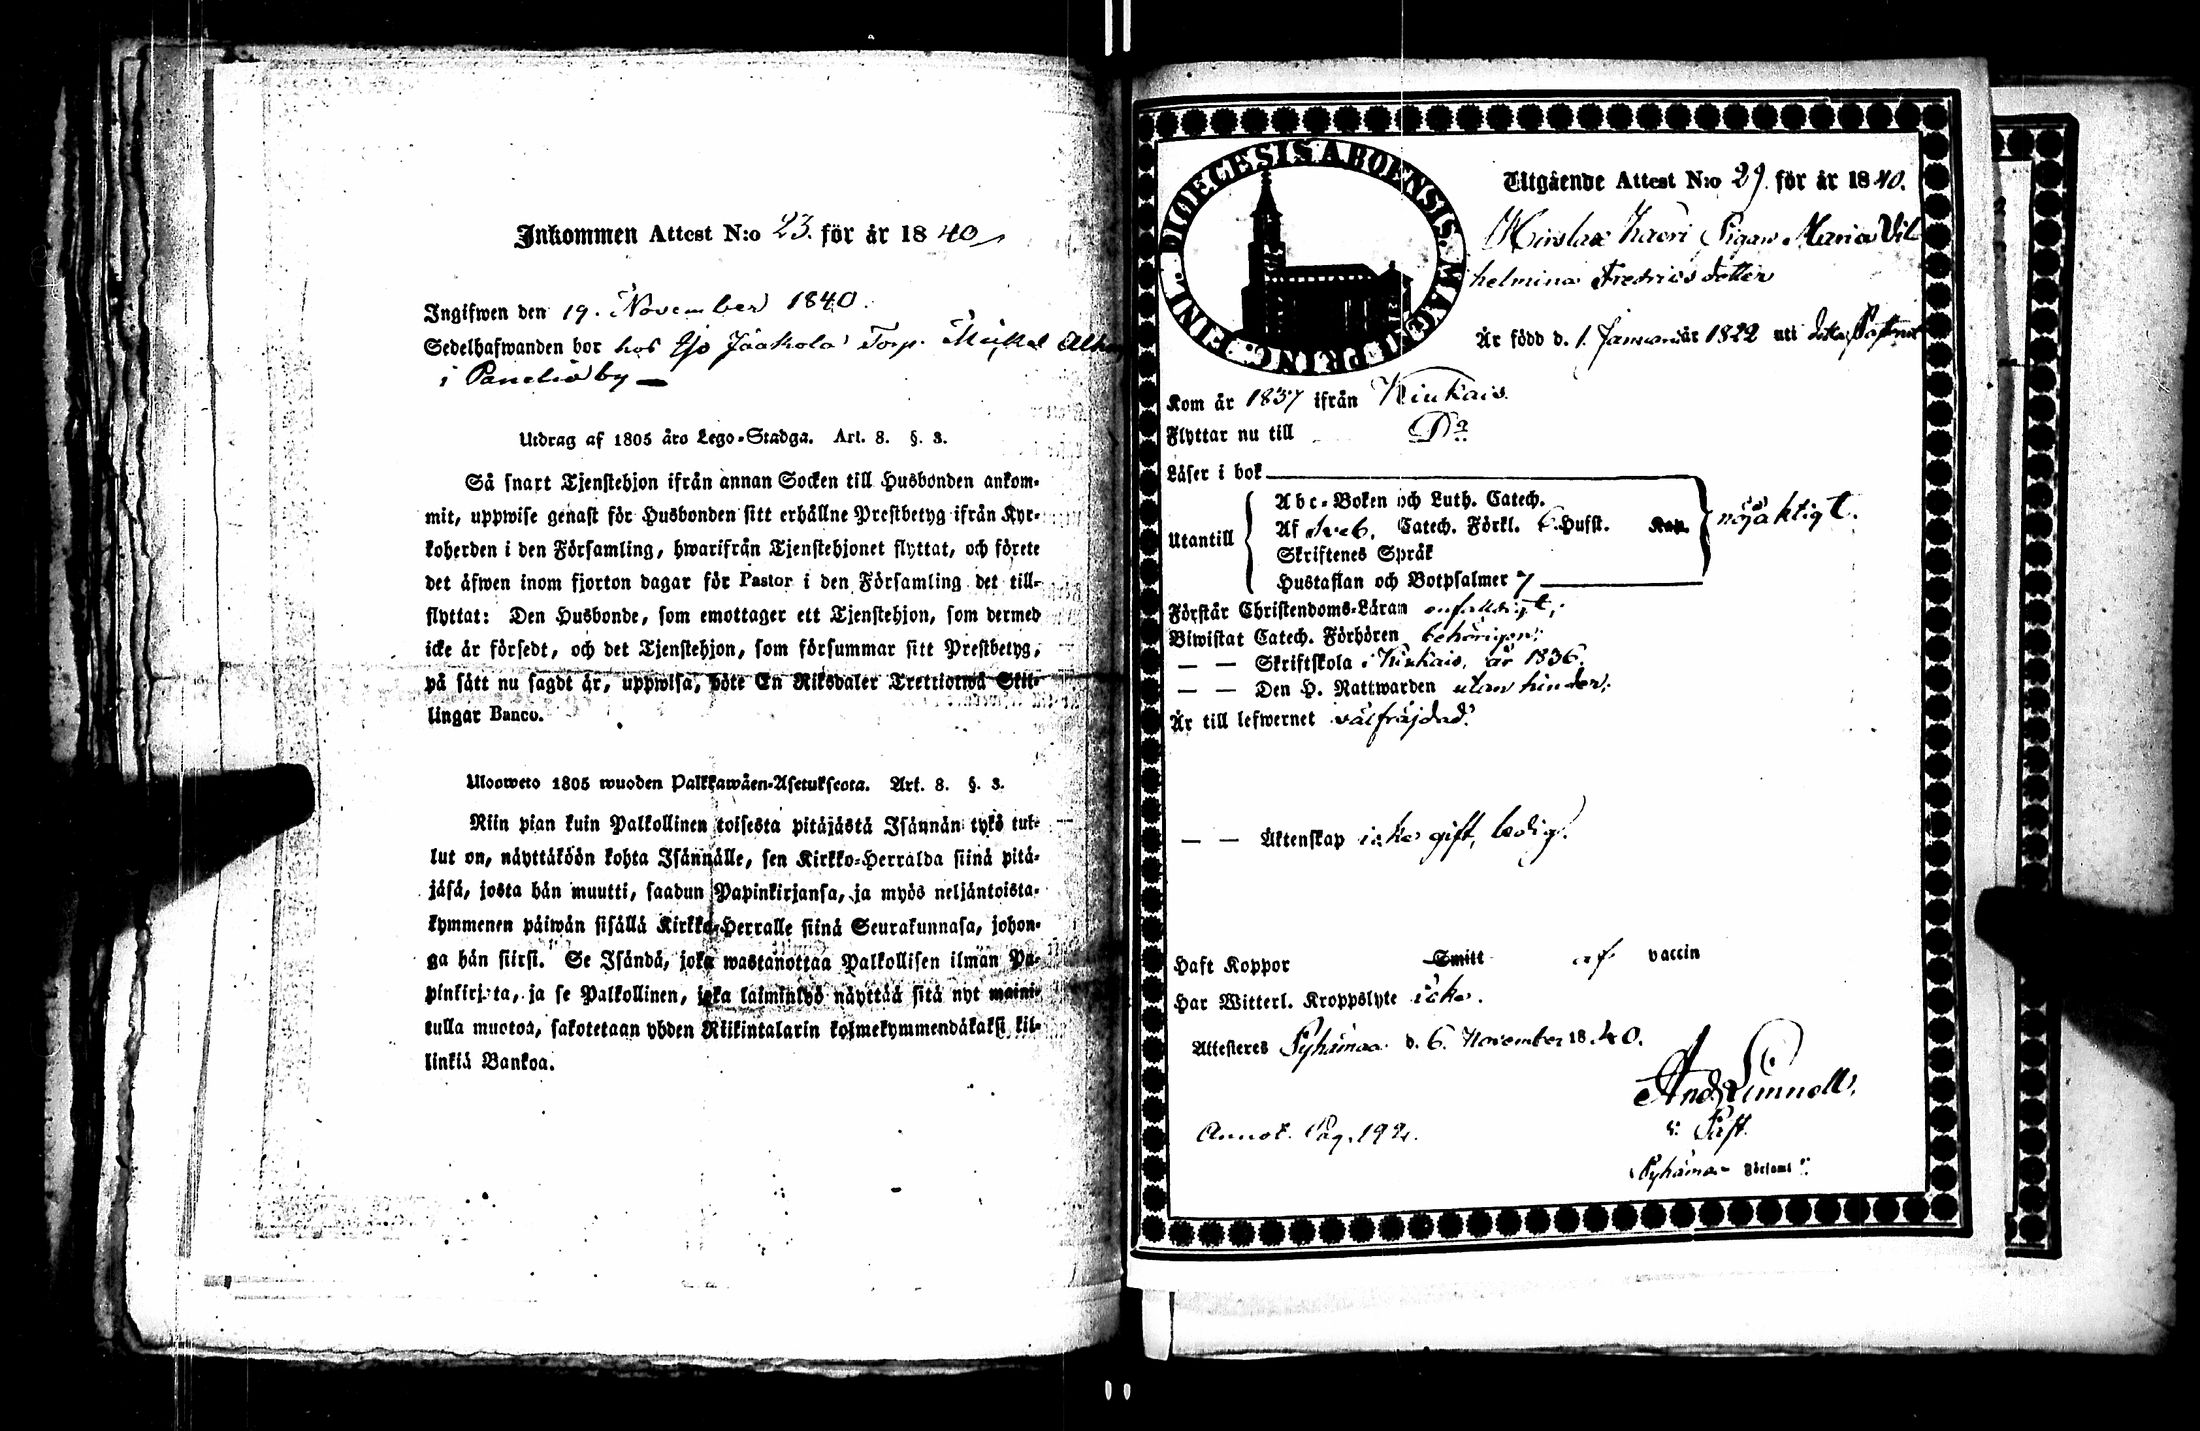 Inkommen Attest N:o 23. för år 1840
Ingifwen den 19. November 1840.
Sedelhafwanden bor hos Yjö Jaakola Torp. Mickel
i Panelia by
Utdrag af 1805 års Lego-Stadga. Art. 8. §. 3.
Så snart Tjenstehjon ifrån annan Socken till Husbonden ankom-
mit, uppwise genast för Husbonden sitt erhållne Prestbetyg ifrån Kyr-
koherden i den Församling, hwarifrån Tjenstehjonet flyttat, och förete
det äfwen inom fjorton dagar för Pastor i den Församling det till-
flyttat: Den Husbonde, som emottager ett Tjenstehjon, som dermed
icke är försedt, och det Tjenstehjon, som försummar sitt Prestbetyg,
på sätt nu sagdt är, uppwisa, böte En Riksdaler Trettiotwå Skil-
lingar Banco.
Ulosweto 1805 wuoden Palkkawäen-Asetuksesta. Art. 8. §. 3.
Niin pian kuin Palkollinen toisesta pitäjästä Isännän tykö tul-
lut on, näyttäköön kohta Isännälle, sen Kirkko-Herralda siinä pitä-
jäsä, josta hän muutti, saadun Papinkirjansa, ja myös neljäntoista-
kymmenen päiwän sisällä Kirkko-Herralle siinä Seurakunnasa, johon-
ga hän siirsi. Se Isändä, joka wastanottaa Palkollisen ilman Pa-
pinkirjata, ja se Palkollinen, joka laiminlyö näyttää sitä nyt maini-
tulla muotoa, sakotetaan yhden Riikintalarin kolmekymmendäkaksi kil-
linkiä Bankoa.
SINL. DIOECESIS ABOENSIS. MAG. PRINC.
Utgående Attest N:o 29. för år 1840.
Kaori Pigan Maria Vil
helmina Fredricsdotter
Är född d. 1. Januari år 1822 uti detta Pastorat
Kom år 1837 ifrån Kiukais.
Flyttar nu till D:o
Läser i bok
Utantill
Abc-Boken och Luth. Catech.
Af Sveb. Catech. Förkl. 6 Hufst. Kap.
Skriftenes Språk
Hustaflan och Botpsalmer 7
nöjaktigt.
Förstår Christendoms-Läran enfaldigt;
Biwistat Catech. Förhören behörigen;
— — Skriftskola i Kiukais, år 1836.
— — Den H. Nattwarden utan hinder;
Är till lefwernet välfräjdad.
— — Äktenskap icke gift, ledig.
Haft Koppor Smitt af vaccin
Har Witterl. Kroppslyte icke.
Attesteres Pyhämaa d. 6. November 1840.
And. Limnell,
v: Past.
Annot. Pag. 192.
Pyhämaa Församl:s